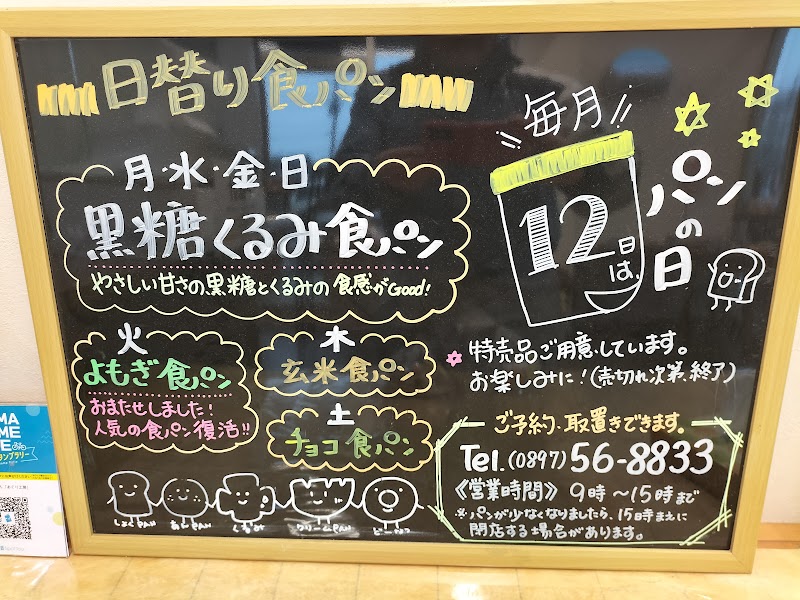 日替り食パン
月・水・金・日
黒糖くるみ食パン
やさしい甘さの黒糖とくるみの食感がGood!
火
よもぎ食パン
おまたせしました!
人気の食パン復活!!
木
玄米食パン
土
チョコ食パン
しょくPAN
あんPAN
くるみ
クリームPAN
毎月
12日は、
パンの日
特売品ご用意しています。
お楽しみに!(売切れ次第、終了)
ご予約、取置きできます。
Tel.(0897)56-8833
《営業時間》 9時〜15時まで
※パンが少なくなりましたら、15時まえに
閉店する場合があります。